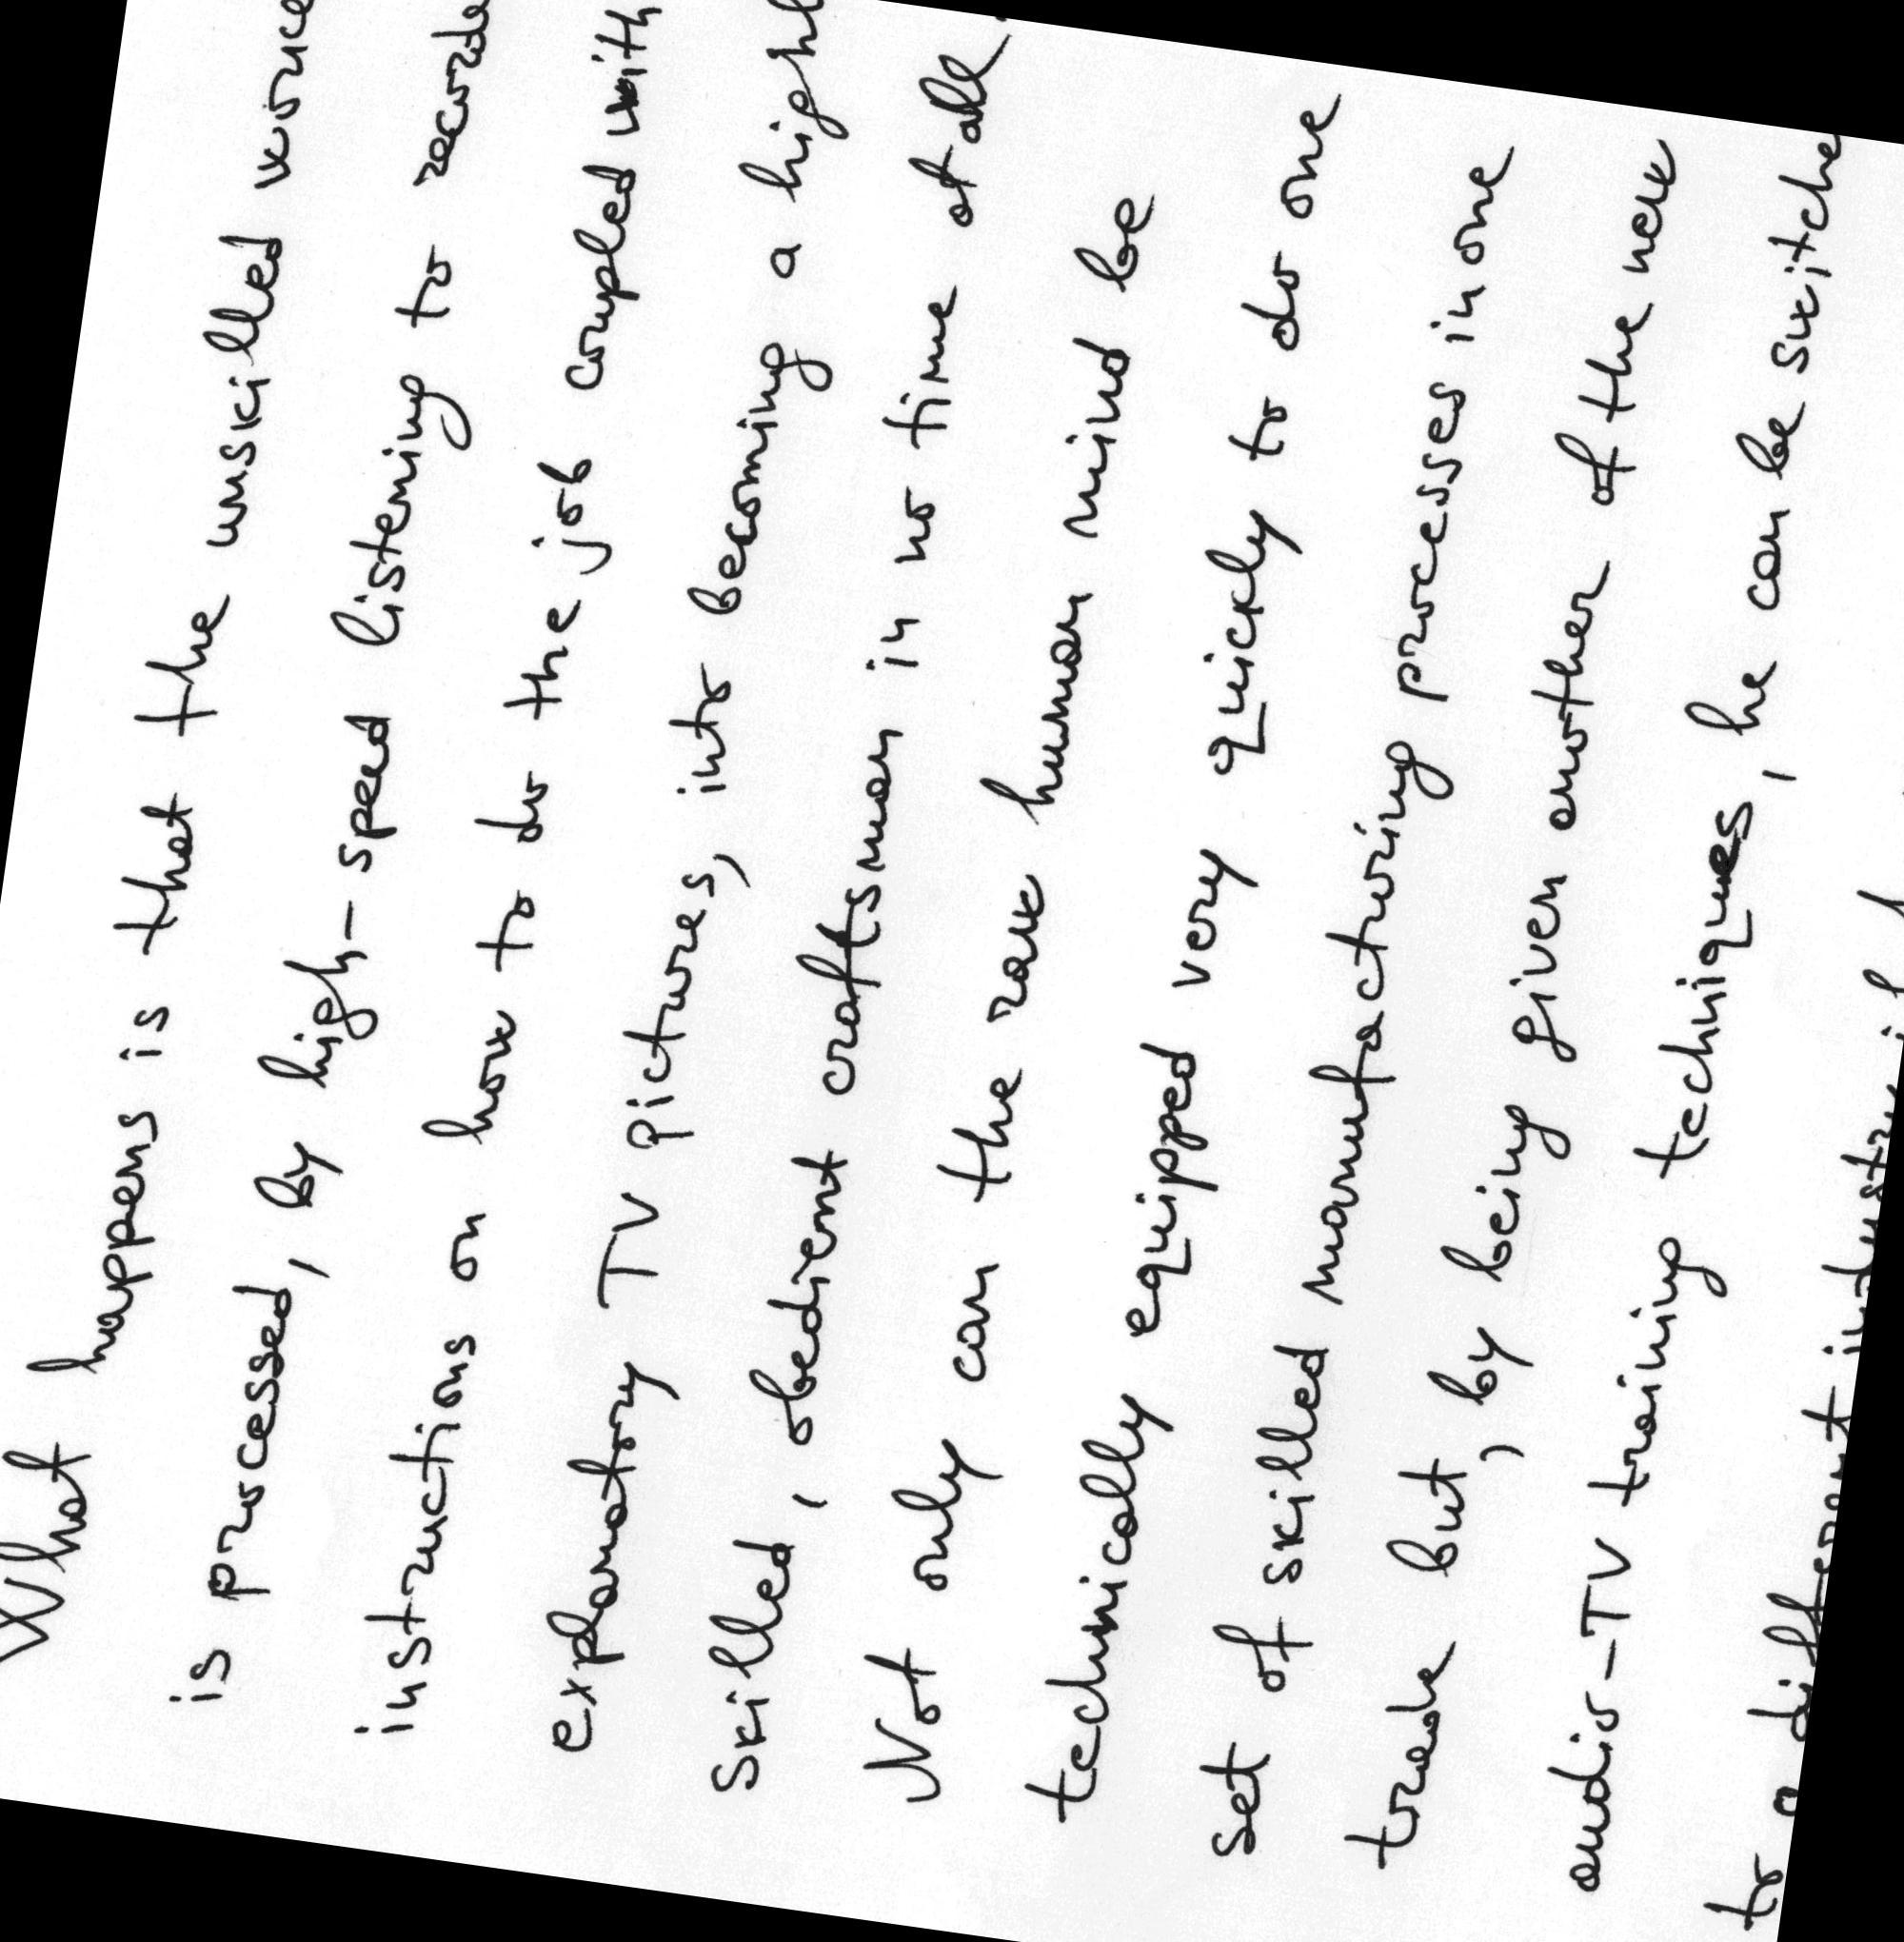 What happens is that the unskilled
is processed, by high-speed listening to
instructions on how to do the job coupled with
explanatory TV pictures, into becoming a
skilled, obedient craftsman in no time at all.
Not only can the raw human mind be
technically equipped very quickly to do one
set of skilled manufacturing processes in one
trade but, by being given another of the new
audio-TV training techniques, he can be
to a different